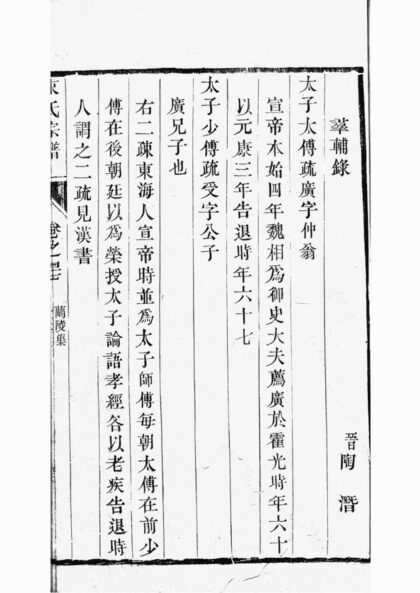 羣輔錄
晉陶潛
太子太傅疏廣字仲翁
宣帝本始四年魏相爲御史大夫薦廣於霍光時年六十
以元康三年告退時年六十七
太子少傅疏受字公子
廣兄子也
右二疎東海人宣帝時並爲太子師傅每朝太傅在前少
傅在後朝廷以爲榮授太子論語孝經各以老疾告退時
人謂之二疏見漢書
氏宗譜
卷之
蘭陵集